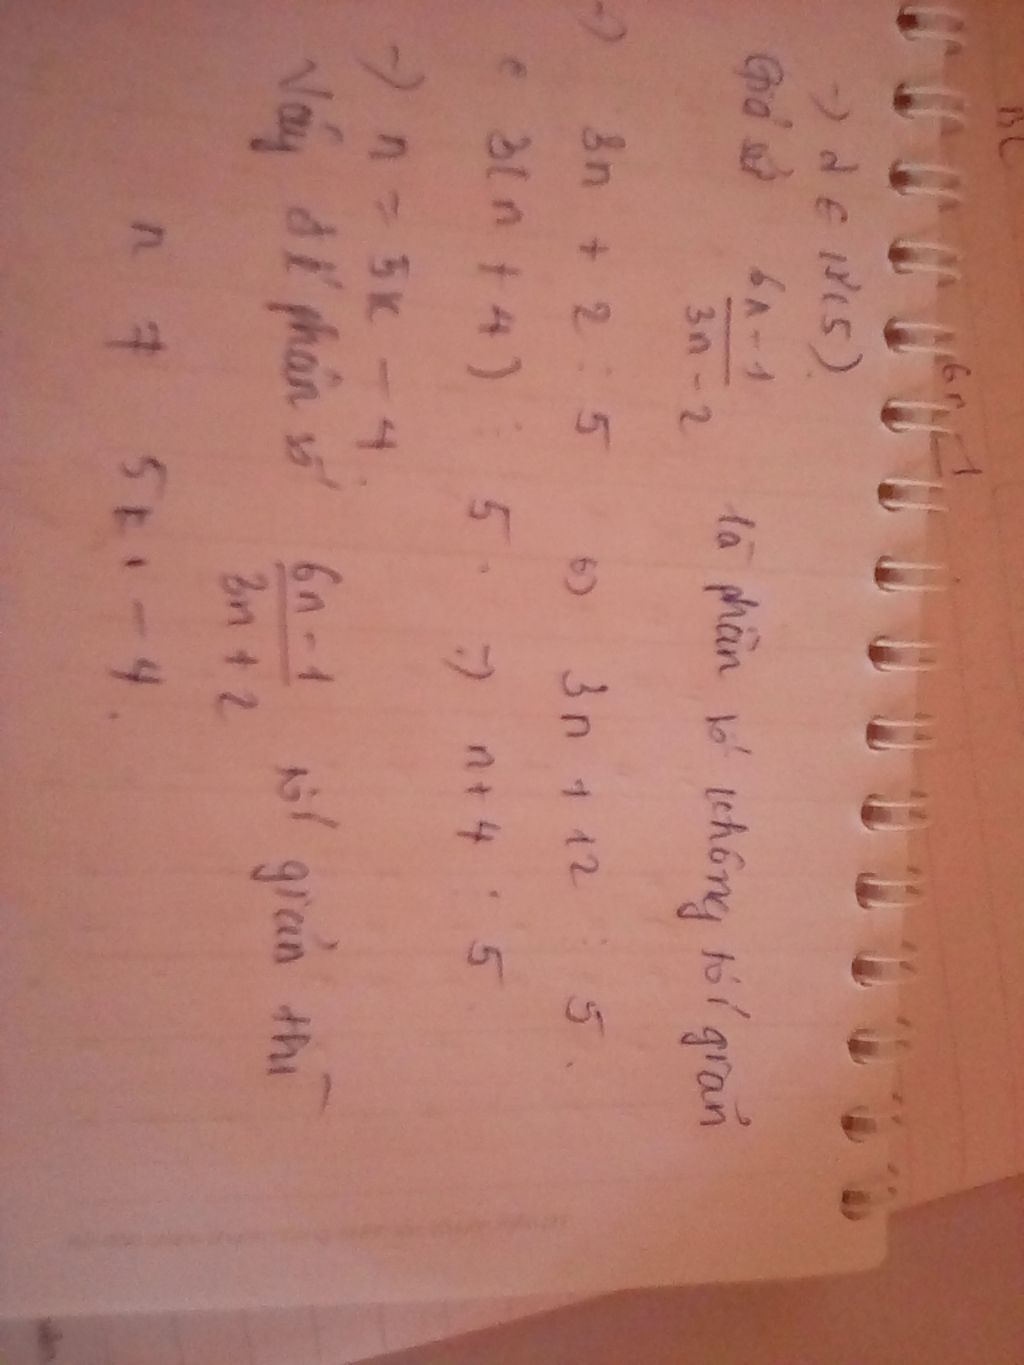 -) d ∈ Ư(5)
Giả sử 6n-1/3n-2 là phân số không tối giản
-) 3n + 2 ⋮ 5 (=) 3n + 12 ⋮ 5.
3(n + 4) ⋮ 5. =) n + 4 ⋮ 5
-) n = 5k - 4.
Vậy để phân số 6n-1/3n+2 tối giản thì
n ≠ 5k - 4.
6n-1